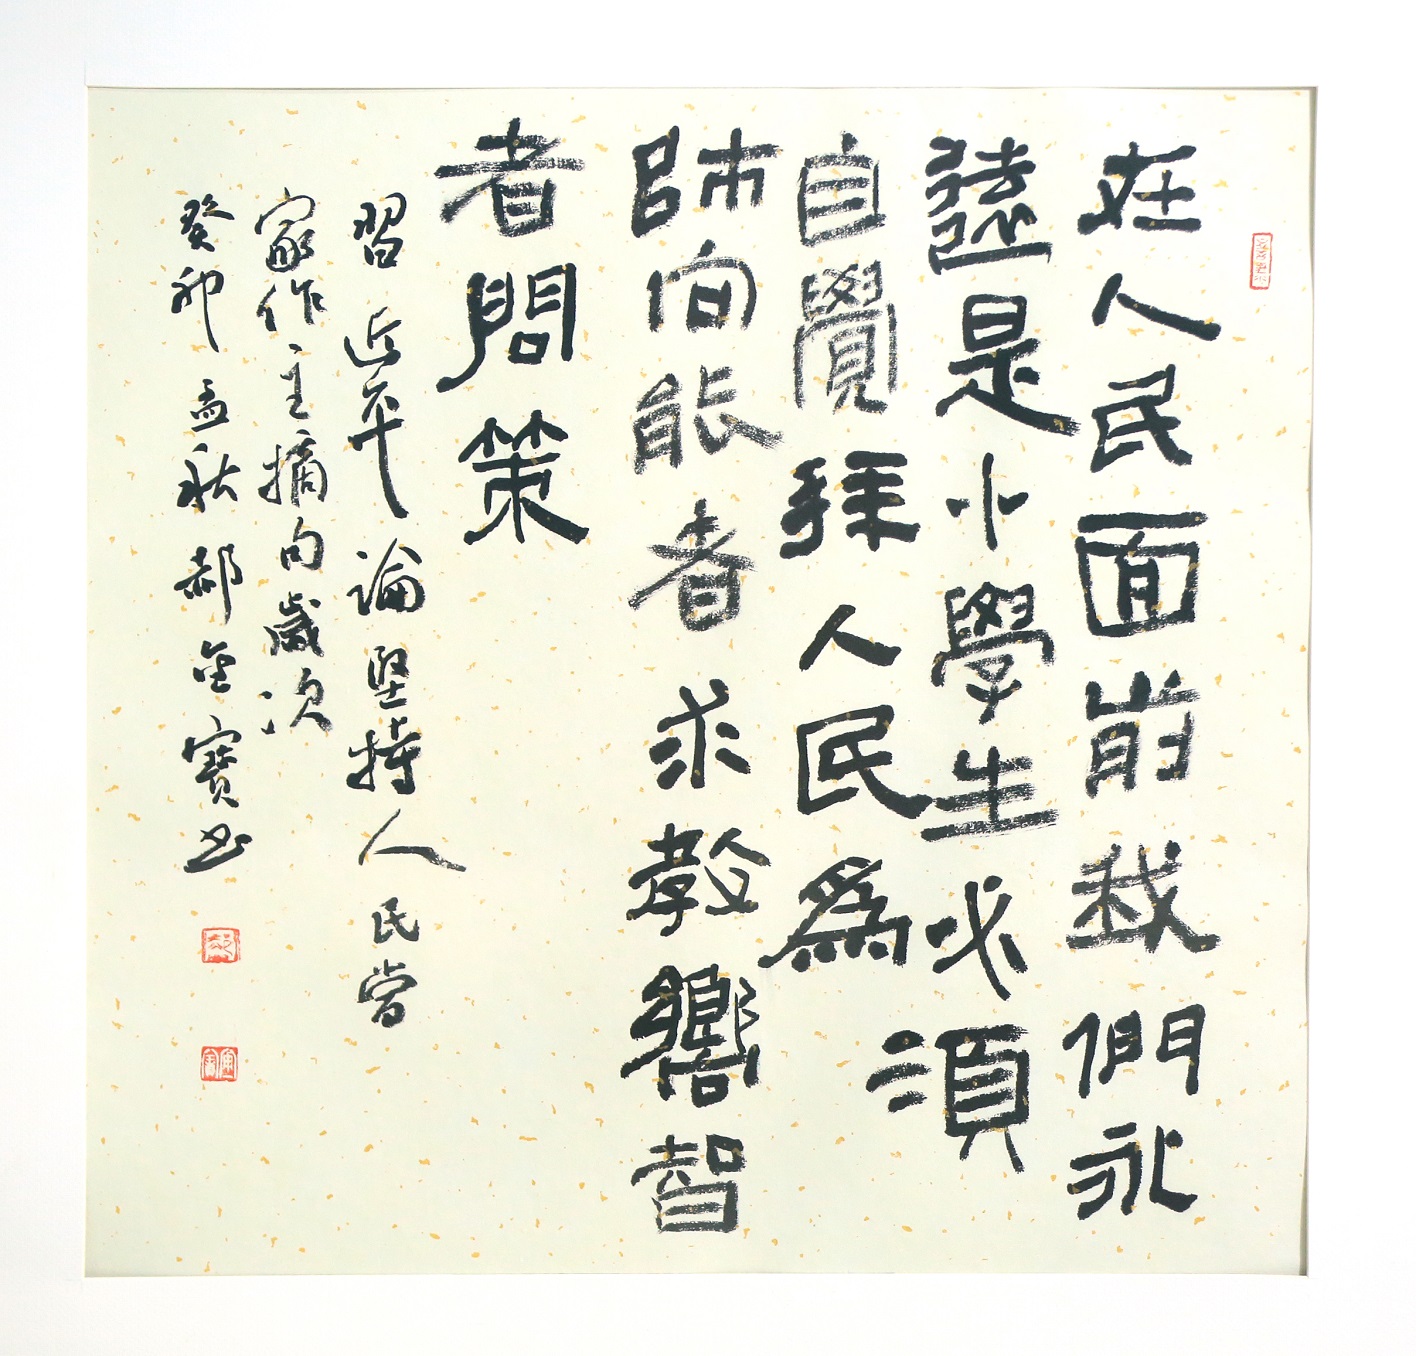 在人民面前我們永
遠是小學生必須
自覺拜人民為
師向能者求教嚮智
者問策
習近平論堅持人民當
家作主摘句歲次
癸卯孟秋郝金寶書